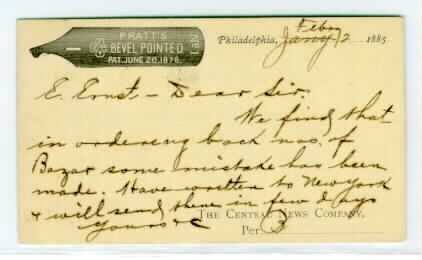 PRATT'S
BEVEL POINTED
PAT. JUNE 20, 1876.
No 1
Feby
Philadelphia, Jany 2 1885
E. Ernst - Dear Sir.
We find that
in ordering back nos. of
Bazar some mistake has been
made. Have written to New York
& will send them in few days
Yours &c
THE CENTRAL NEWS COMPANY,
Per